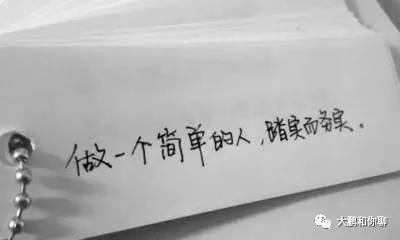 做一个简单的人，踏实而务实。
大鹏和你聊